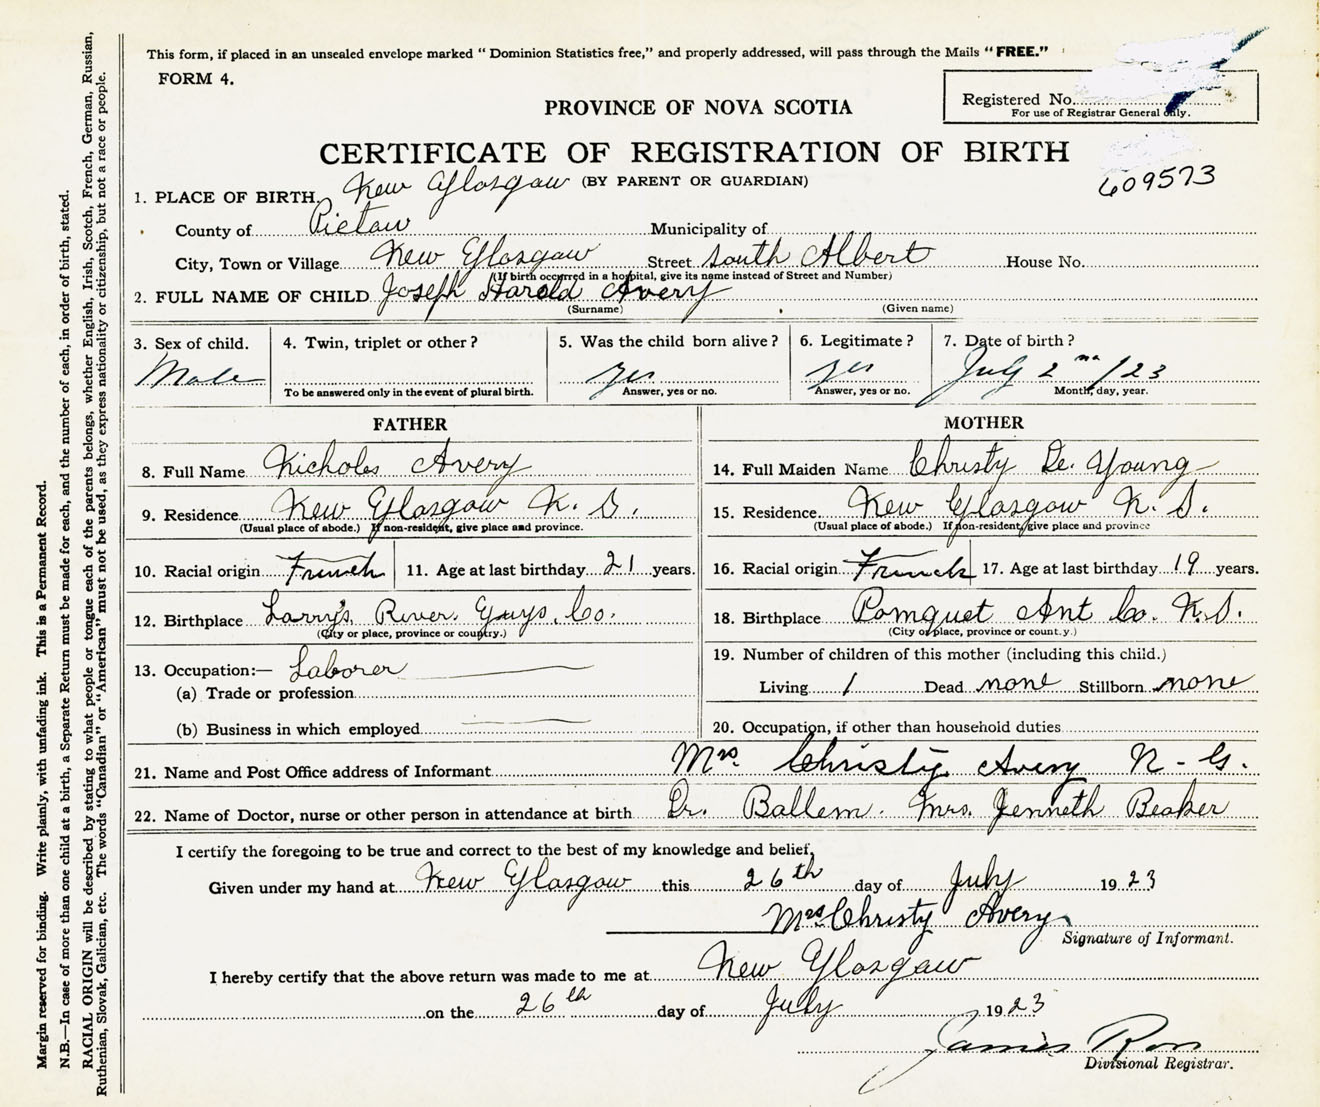 This form, if placed in an unsealed envelope marked "Dominion Statistics free," and properly addressed, will pass through the Mails "FREE."
FORM 4.
Registered No.
For use of Registrar General only.
PROVINCE OF NOVA SCOTIA
CERTIFICATE OF REGISTRATION OF BIRTH
(BY PARENT OR GUARDIAN)
609573
1. PLACE OF BIRTH. New Glasgow
County of Pictaw Municipality of
City, Town or Village New Glasgaw Street South Albert House No.
(If birth occurred in a hospital, give its name instead of Street and Number)
2. FULL NAME OF CHILD Joseph Harold Avery
(Surname) (Given name)
3. Sex of child. 4. Twin, triplet or other? 5. Was the child born alive? 6. Legitimate? 7. Date of birth?
Male yes yes July 2nd/23
To be answered only in the event of plural birth. Answer, yes or no. Answer, yes or no. Month, day, year.
FATHER MOTHER
8. Full Name Nicholas Avery 14. Full Maiden Name Christy De. Young
9. Residence New Glasgow N. S. 15. Residence New Glasgow N. S.
(Usual place of abode.) If non-resident, give place and province. (Usual place of abode.) If non-resident, give place and province
10. Racial origin French 11. Age at last birthday 21 years. 16. Racial origin French 17. Age at last birthday 19 years.
12. Birthplace Larry's River. Guys. Co. 18. Birthplace Pomquet Ant Co. N.S.
(City or place, province or country.) (City or place, province or count.y.)
13. Occupation:— Laborer 19. Number of children of this mother (including this child.)
(a) Trade or profession Living 1 Dead none Stillborn none
(b) Business in which employed 20. Occupation, if other than household duties
21. Name and Post Office address of Informant Mrs Christy Avery N-G.
22. Name of Doctor, nurse or other person in attendance at birth Dr. Ballem. Mrs. Jenneth Beaker
I certify the foregoing to be true and correct to the best of my knowledge and belief,
Given under my hand at New Glasgow this 26th day of July 1923
Mrs Christy Avery
Signature of Informant.
I hereby certify that the above return was made to me at New Glasgaw
on the 26th day of July 1923
James Ross
Divisional Registrar.
Margin reserved for binding. Write plainly, with unfading ink. This is a Permanent Record.
N.B.—In case of more than one child at a birth, a Separate Return must be made for each, and the number of each, in order of birth, stated.
RACIAL ORIGIN will be described by stating to what people or tongue each of the parents belongs, whether English, Irish, Scotch, French, German, Russian,
Ruthenian, Slovak, Galician, etc. The words "Canadian" or "American" must not be used, as they express nationality or citizenship, but not a race or people.